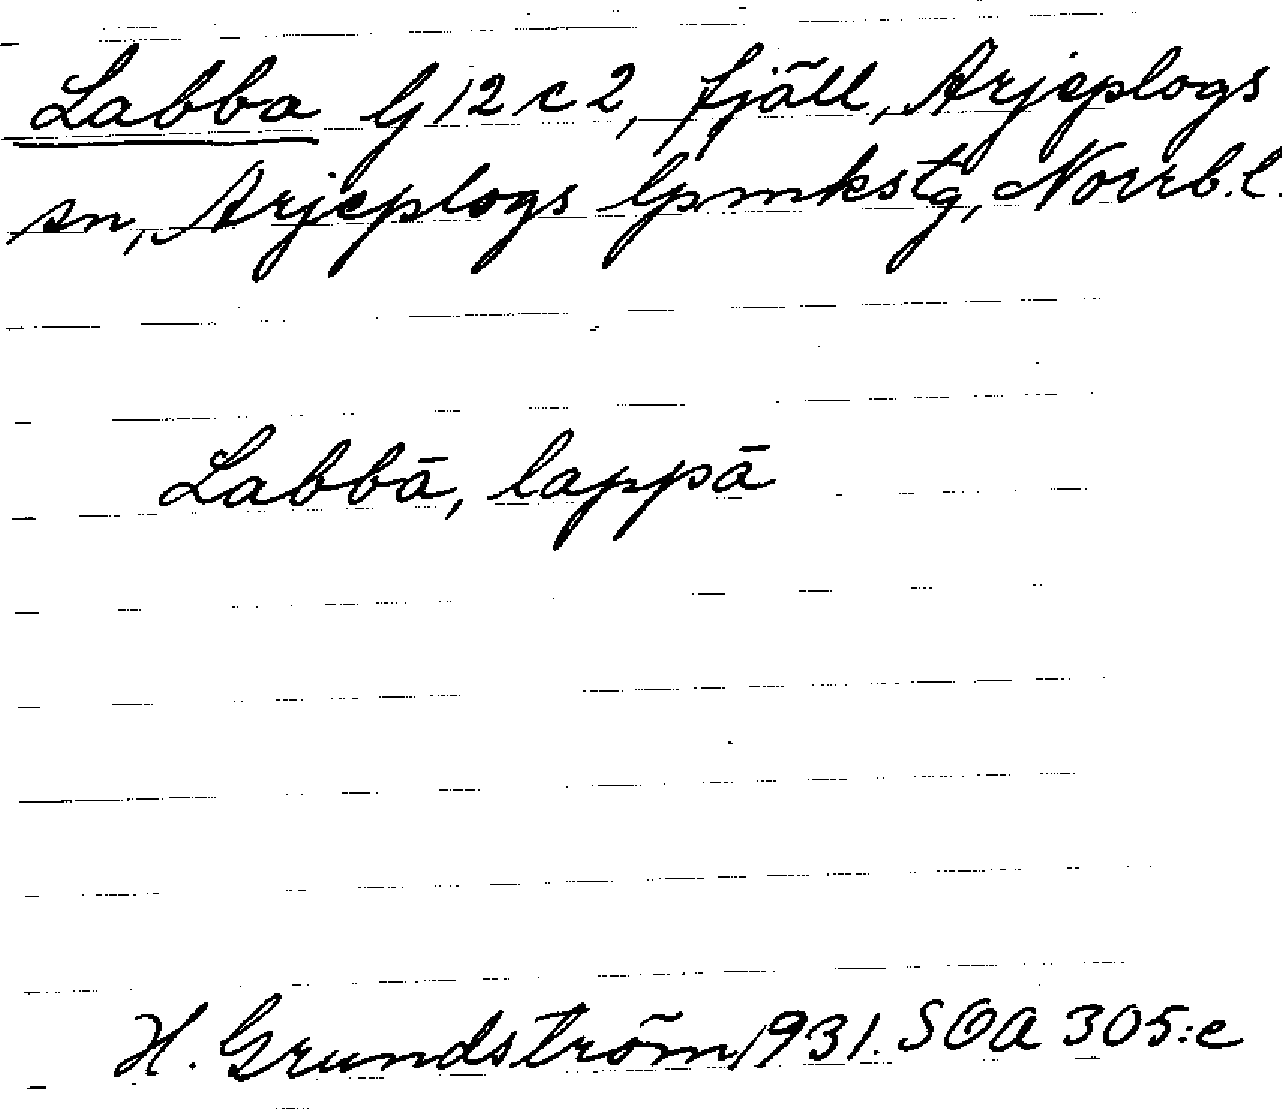 Labba G 12 c 2, fjäll, Arjeplogs
sn, Arjeplogs lpmkstg, Norrb.l.
Labbā, lappā
H. Grundström 1931. SOA 305:c